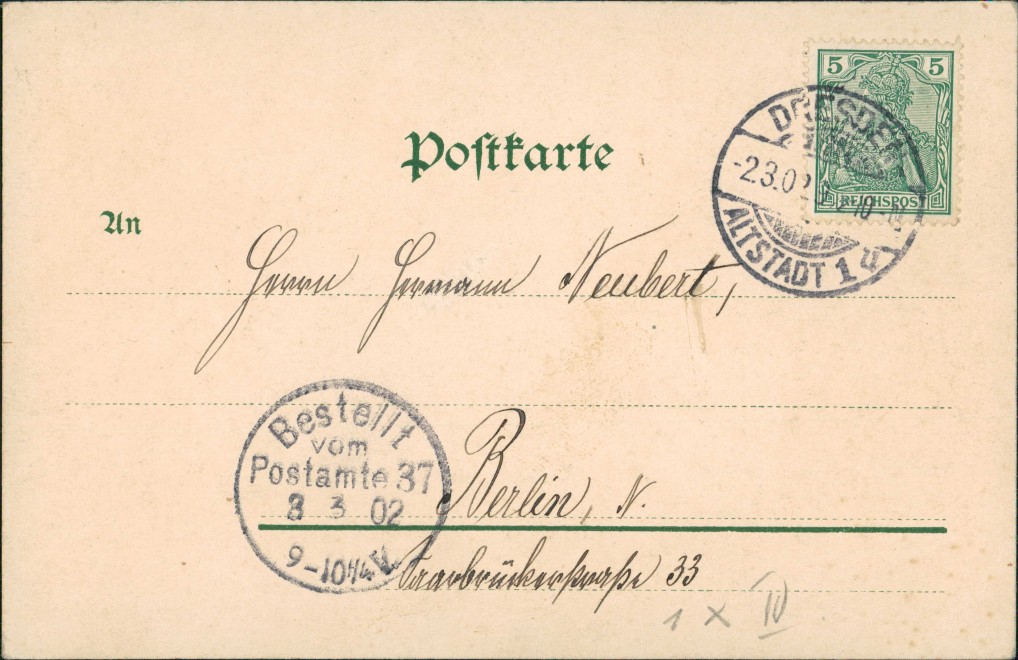 5 5
REICHSPOST
DRESDEN
-2.3.02
ALTSTADT 1
Postkarte
An
Herrn Hermann Neubert,
Bestellt
vom
Postamte 37
3 3 02
9-10¼ V.
Berlin, N.
Saarbrückerstraße 33
1 X IV